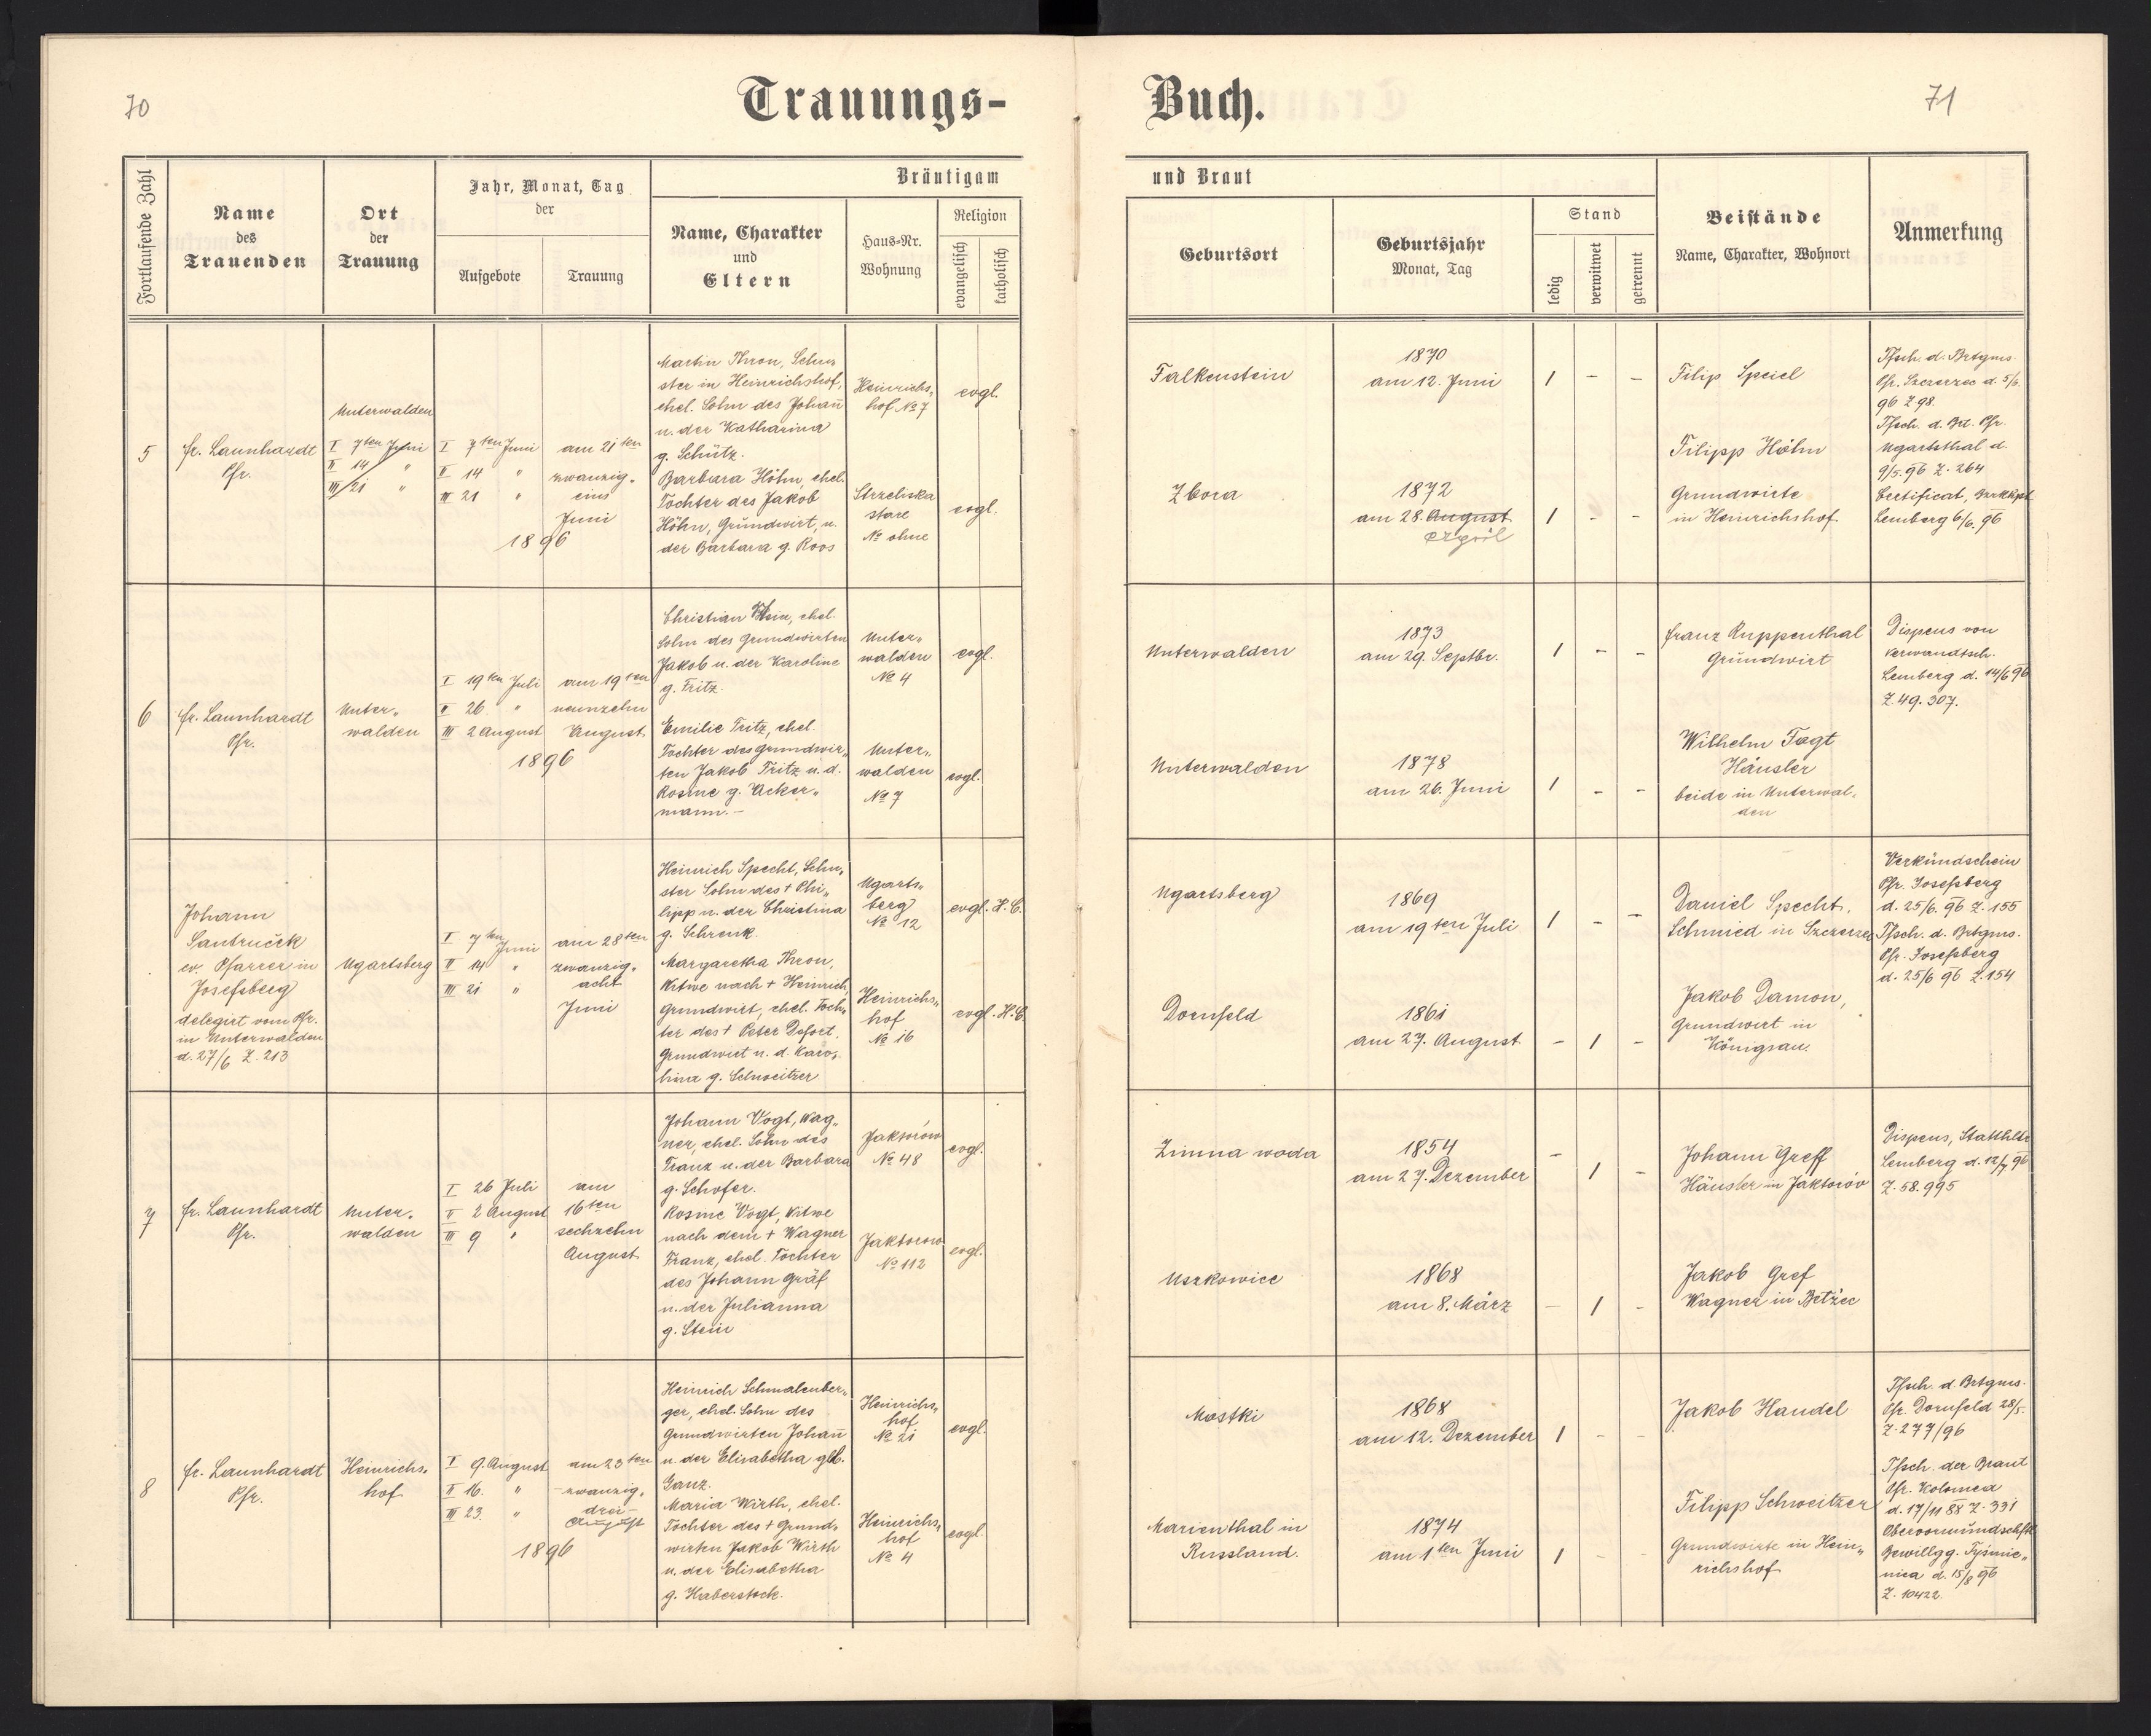 70
Trauungs-
Buch.
71
Fortlaufende Zahl
Name
des
Trauenden
Ort
der
Trauung
Jahr, Monat, Tag
der
Aufgebote
Trauung
Bräutigam
Name, Charakter
und
Eltern
Haus-Nr.
Wohnung
Religion
evangelisch
katholisch
und Braut
Geburtsort
Geburtsjahr
Monat, Tag
Stand
ledig
verwitwet
getrennt
Beistände
Name, Charakter, Wohnort
Anmerkung
5
fr. Launhardt
Pfr.
Unterwalden
I 7ten Juni
II 14 "
III 21 "
I 7ten Juni
II 14 "
III 21 "
am 21ten
zwanzig-
eins
Juni
1896
Martin Thron, Schu-
ster in Heinrichshof,
ehel. Sohn des Johañ
u. der Katharina
g. Schütz.
Barbara Höhn, ehel.
Tochter des Jakob
Höhn, Grundwirt, u.
der Barbara g. Roos
Heinrichs-
hof № 7
Strzeliska
stare
№ ohne
evgl.
evgl.
Falkenstein
Zbora
1870
am 12. Juni
1872
am 28. August
April
1 - -
1 - -
Filip Speiel
Filipp Höhn
Grundwirte
in Heinrichshof
Tfsch. d. Brtgms.
Pfr. Szczerzec d. 5/6.
96 Z. 98.
Tfsch. d. Brt. Pfr.
Ugartsthal d.
9/5. 96 Z. 264
Certificat,
Lemberg 6/6. 96
6
fr. Launhardt
Pfr.
Unter-
walden
I 19ten Juli
II 26. "
III 2 August
am 19ten
neunzehn
August
1896
Christian ehel.
Sohn des Grundwirten
Jakob u. der Karoline
g. Fritz.
Emilie Fritz, ehel.
Tochter des Grundwir-
ten Jakob Fritz u. d.
Rosine g. Acker-
mann. -
Unter-
walden
№ 4
Unter-
walden
№ 7
evgl.
evgl.
Unterwalden
Unterwalden
1873
am 29. Septbr.
1878
am 26. Juni
1 - -
1 - -
Franz Ruppenthal
Grundwirt
Wilhelm Fogt
Häusler
beide in Unterwal-
den
Dispens von
Verwandtsch.
Lemberg d. 14/6 96
Z. 49. 307.
Johann
Santruček
ev. Pfarrer in
Josefsberg
delegirt vom Pfr.
in Unterwalden
d. 27/6 Z. 213
Ugartsberg
I 7ten Juni
II 14 "
III 21 "
am 28ten
zwanzig-
acht
Juni
Heinrich Specht, Schu-
ster Sohn des + Phi-
lipp u. der Christina
g. Schrenk.
Margaretha Thron,
Witwe nach + Heinrich,
Grundwirt, ehel. Toch-
ter des + Peter Dofort,
Grundwirt u. d. Karo-
lina g. Schweitzer.
Ugarts-
berg
№ 12
Heinrichs-
hof
№ 16
evgl. H. C.
evgl. H. C.
Ugartsberg
Dornfeld
1869
am 19ten Juli
1861
am 27. August
1 - -
- 1 -
Daniel Specht,
Schmied in Szczerzec
Jakob Damon,
Grundwirt in
Königsau.
Verkündschein
Pfr. Josefsberg
d. 25/6. 96 Z. 155
Tfsch. d. Brtgms.
Pfr. Josefsberg
d. 25/6 96 Z. 154
7
fr. Launhardt
Pfr.
Unter-
walden
I 26 Juli
II 2 August
III 9 "
am
16ten
sechzehn
August
Johann Vogt, Wag-
ner, ehel. Sohn des
Franz u. der Barbara
g. Schofer.
Rosine Vogt, Witwe
nach dem + Wagner
Franz, ehel. Tochter
des Johann Gräf
u. der Julianna
g. Stein
Jaktorów
№ 48
Jaktorow
№ 112
evgl.
evgl.
Zimna woda
Uszkowice
1854
am 27. Dezember
1868
am 8. März
- 1 -
- 1 -
Johann Greff
Häusler in Jaktorów
Jakob Gref
Wagner in Betżec
Dispens, Statthlt.
Lemberg d. 12/7 96
Z. 58.995
8
fr. Launhardt
Pfr.
Heinrichs-
hof
I 9. August
II 16. "
III 23. "
am 23ten
zwanzig-
drei
August
1896
Heinrich Schmalenber-
ger, ehel. Sohn des
Grundwirten Johañ
u. der Elisabetha gb.
Ganz.
Maria Wirth, ehel.
Tochter des + Grund-
wirten Jakob Wirth
u. der Elisabetha
g. Haberstock.
Heinrichs-
hof
№ 21
Heinrichs-
hof
№ 4
evgl.
evgl.
Mostki
Marienthal in
Russland.
1868
am 12. Dezember
1874
am 1ten Juni
1 - -
1 - -
Jakob Handel
Filipp Schweitzer
Grundwirte in Hein-
richshof
Tfsch. d. Brtgms.
Pfr. Dornfeld 28/5.
Z. 277/96
Tfsch. der Braut
Pfr. Kolomea
d. 17/11 88 Z. 331
Obervormundschftl.
Bewillgg. Tyśmie-
nica d. 15/8 96
Z. 10422.